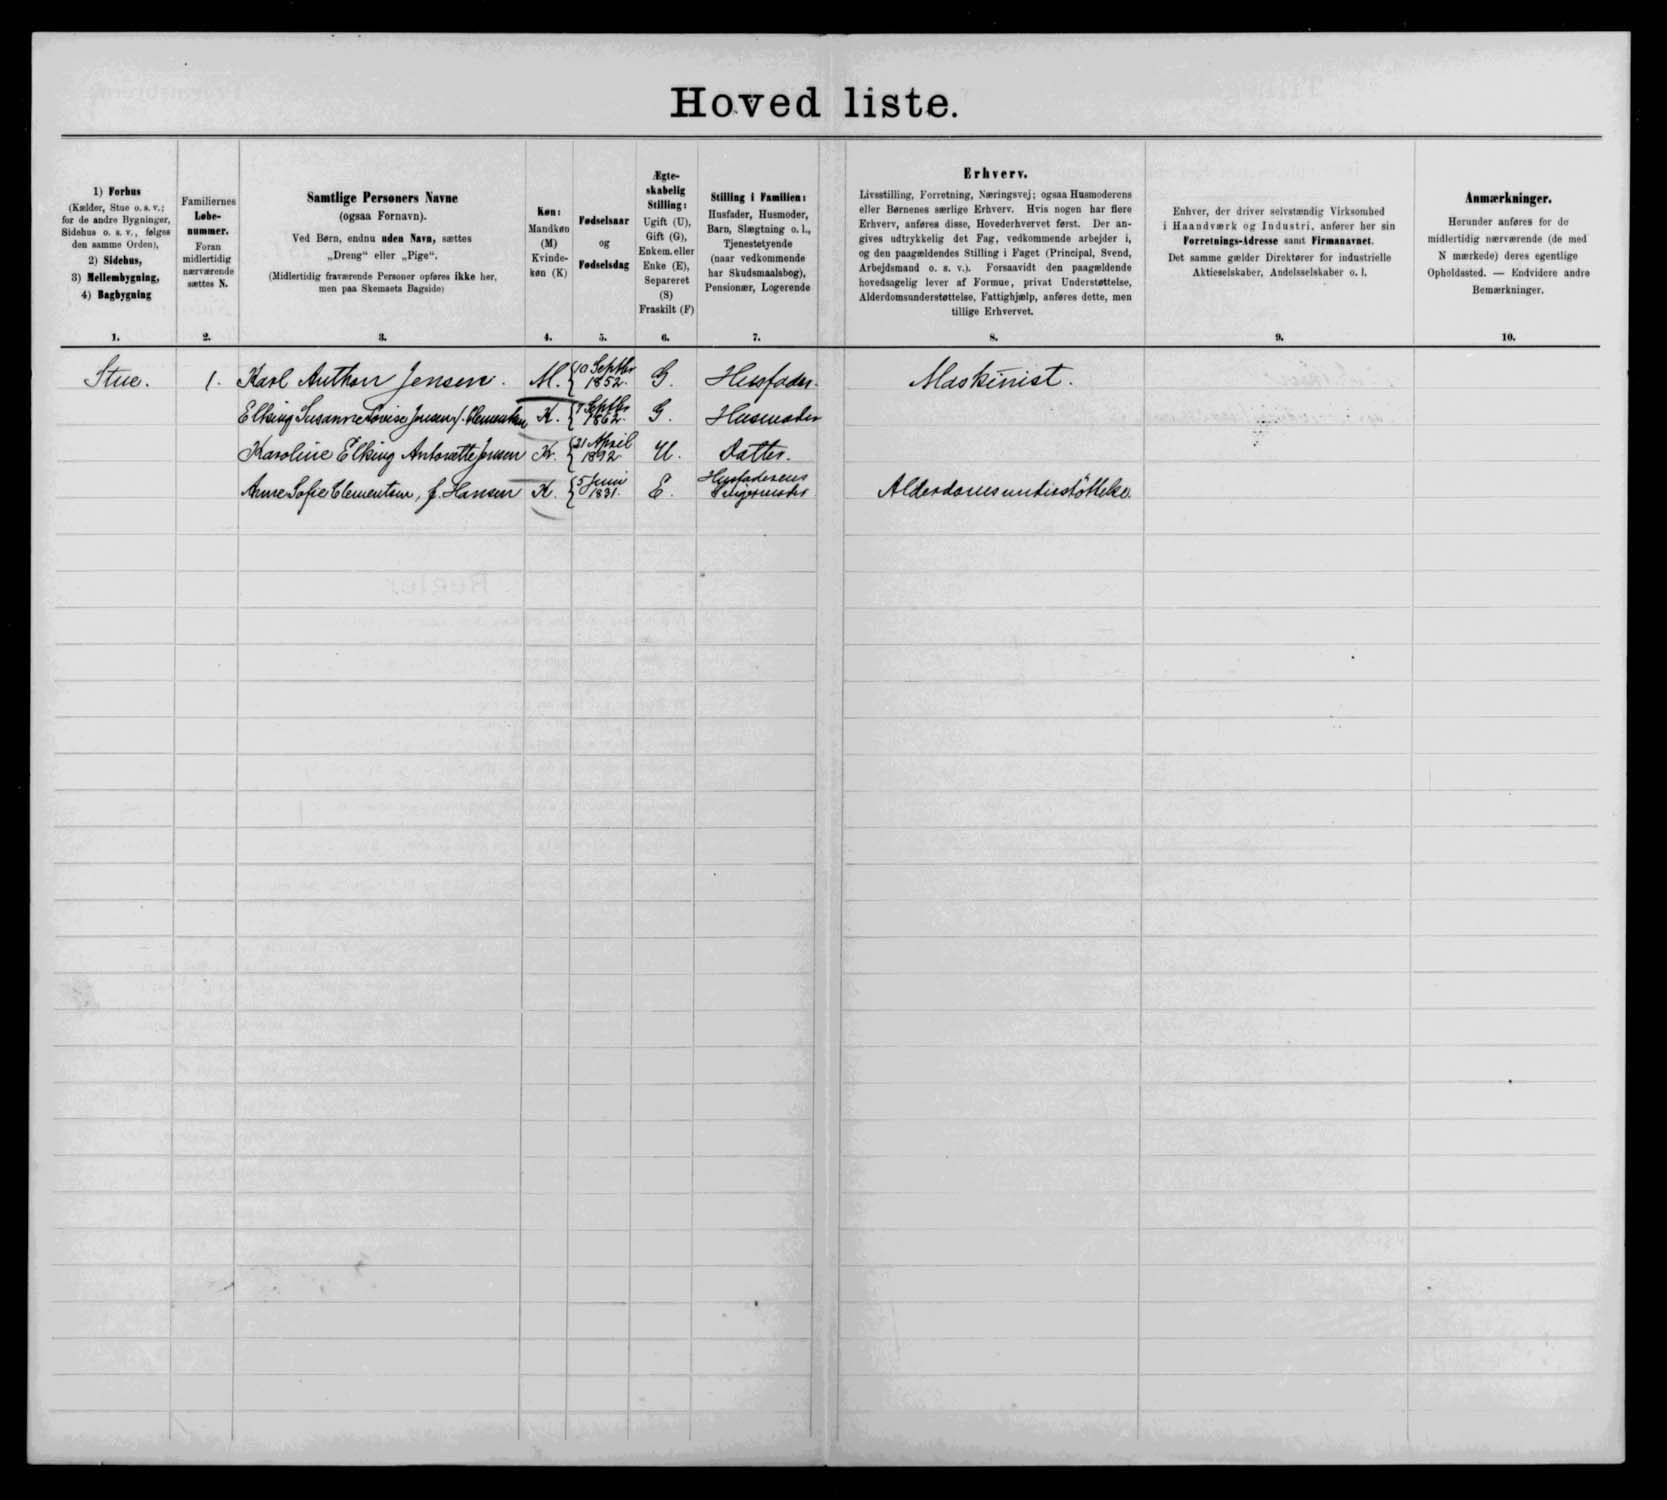 Hovedliste.
1) Forhus
(Kælder, Stue o. s. v.;
for de andre Bygninger,
Sidehus o. s. v., følges
den samme Orden),
2) Sidehus,
3) Mellembygning,
4) Bagbygning
1.
Familiernes
Løbe-
nummer.
Foran
midlertidig
nærværende
sættes N.
2.
Samtlige Personers Navne
(ogsaa Fornavn).
Ved Børn, endnu uden Navn, sættes
„Dreng" eller „Pige".
(Midlertidig fraværende Personer opføres ikke her,
men paa Skemaets Bagside)
3.
Køn:
Mandkøn
(M)
Kvinde-
køn (K)
4.
Fødselsaar
og
Fødselsdag
5.
Ægte-
skabelig
Stilling:
Ugift (U),
Gift (G),
Enkem. eller
Enke (E),
Separeret
(S)
Fraskilt (F)
6.
Stilling i Familien:
Husfader, Husmoder,
Barn, Slægtning o. l.,
Tjenestetyende
(naar vedkommende
har Skudsmaalsbog),
Pensionær, Logerende
7.
Erhverv.
Livsstilling, Forretning, Næringsvej; ogsaa Husmoderens
eller Børnenes særlige Erhverv. Hvis nogen har flere
Erhverv, anføres disse, Hovederhvervet først. Der an-
gives udtrykkelig det Fag, vedkommende arbejder i,
og den paagældendes Stilling i Faget (Principal, Svend,
Arbejdsmand o. s. v.). Forsaavidt den paagældende
hovedsagelig lever af Formue, privat Understøttelse,
Alderdomsunderstøttelse, Fattighjælp, anføres dette, men
tillige Erhvervet.
8.
Enhver, der driver selvstændig Virksomhed
i Haandværk og Industri, anfører her sin
Forretnings-Adresse samt Firmanavnet.
Det samme gælder Direktører for industrielle
Aktieselskaber, Andelsselskaber o. l.
9.
Anmærkninger.
Herunder anføres for de
midlertidig nærværende (de med
N mærkede) deres egentlige
Opholdssted. — Endvidere andre
Bemærkninger.
10.
Stue. 1. Karl Anthon Jensen. M. 10 Septbr 1852. G. Husfader. Maskinist.
Elking Susanne Lovise Jensen f. Clementsen K. 7 Septbr 1862. G. Husmoder
Karoline Elking Antonette Jensen K. 21 April 1892 U. Datter.
Anne Sofie Clementsen, f. Hansen K. 5 Juni 1831. E. Husfaderens Svigermoder Alderdomsunderstøttelse.